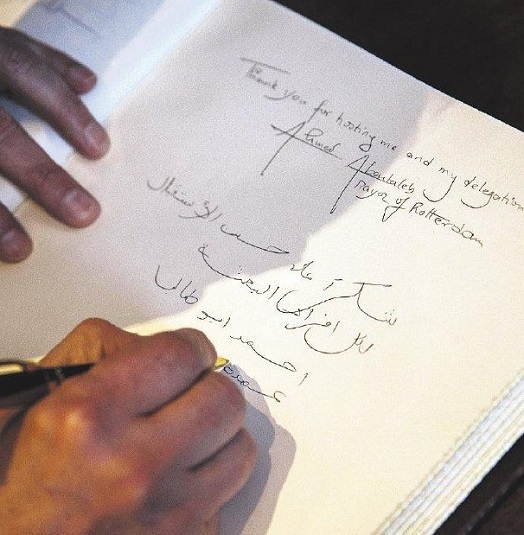 Thank you for hosting me and my delegation
Ahmed Aboutaleb
Mayor of Rotterdam
شكرا على حسن الإستقبال
لكل افراد البعثة
احمد ابو طالب
عمدة